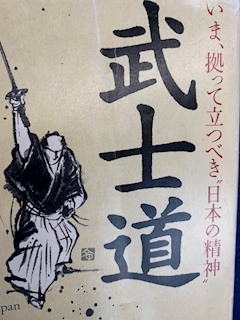 いま、拠って立つべき”日本の精神”
武士道
pan